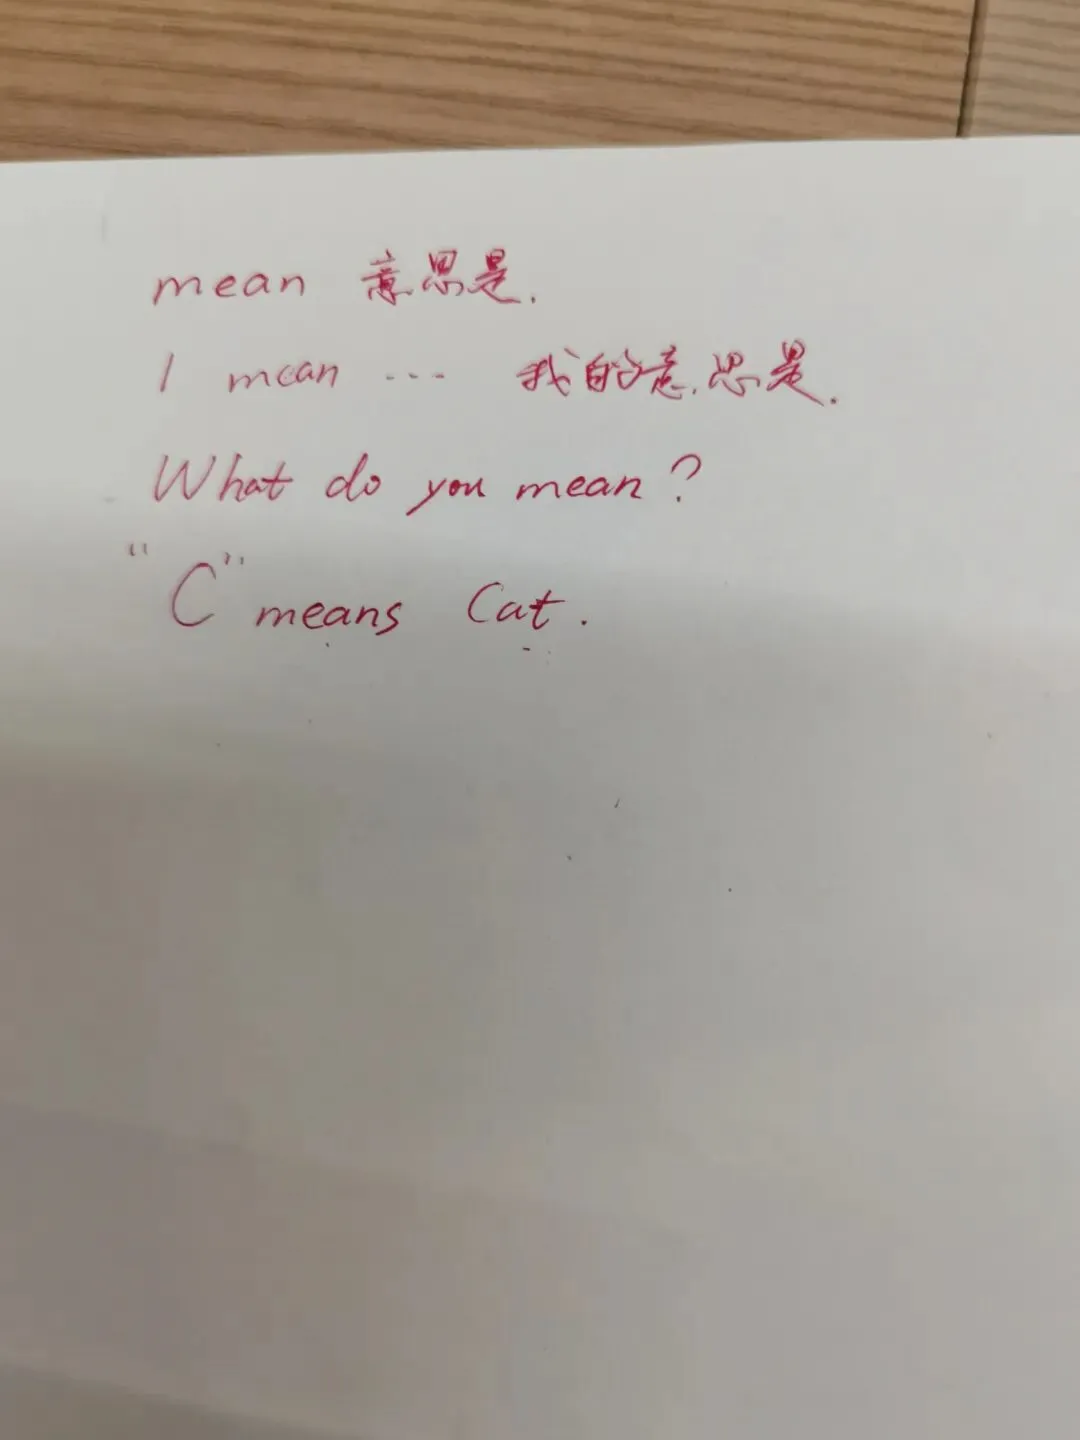 mean 意思是.
I mean ... 我的意思是.
What do you mean?
"C" means Cat.